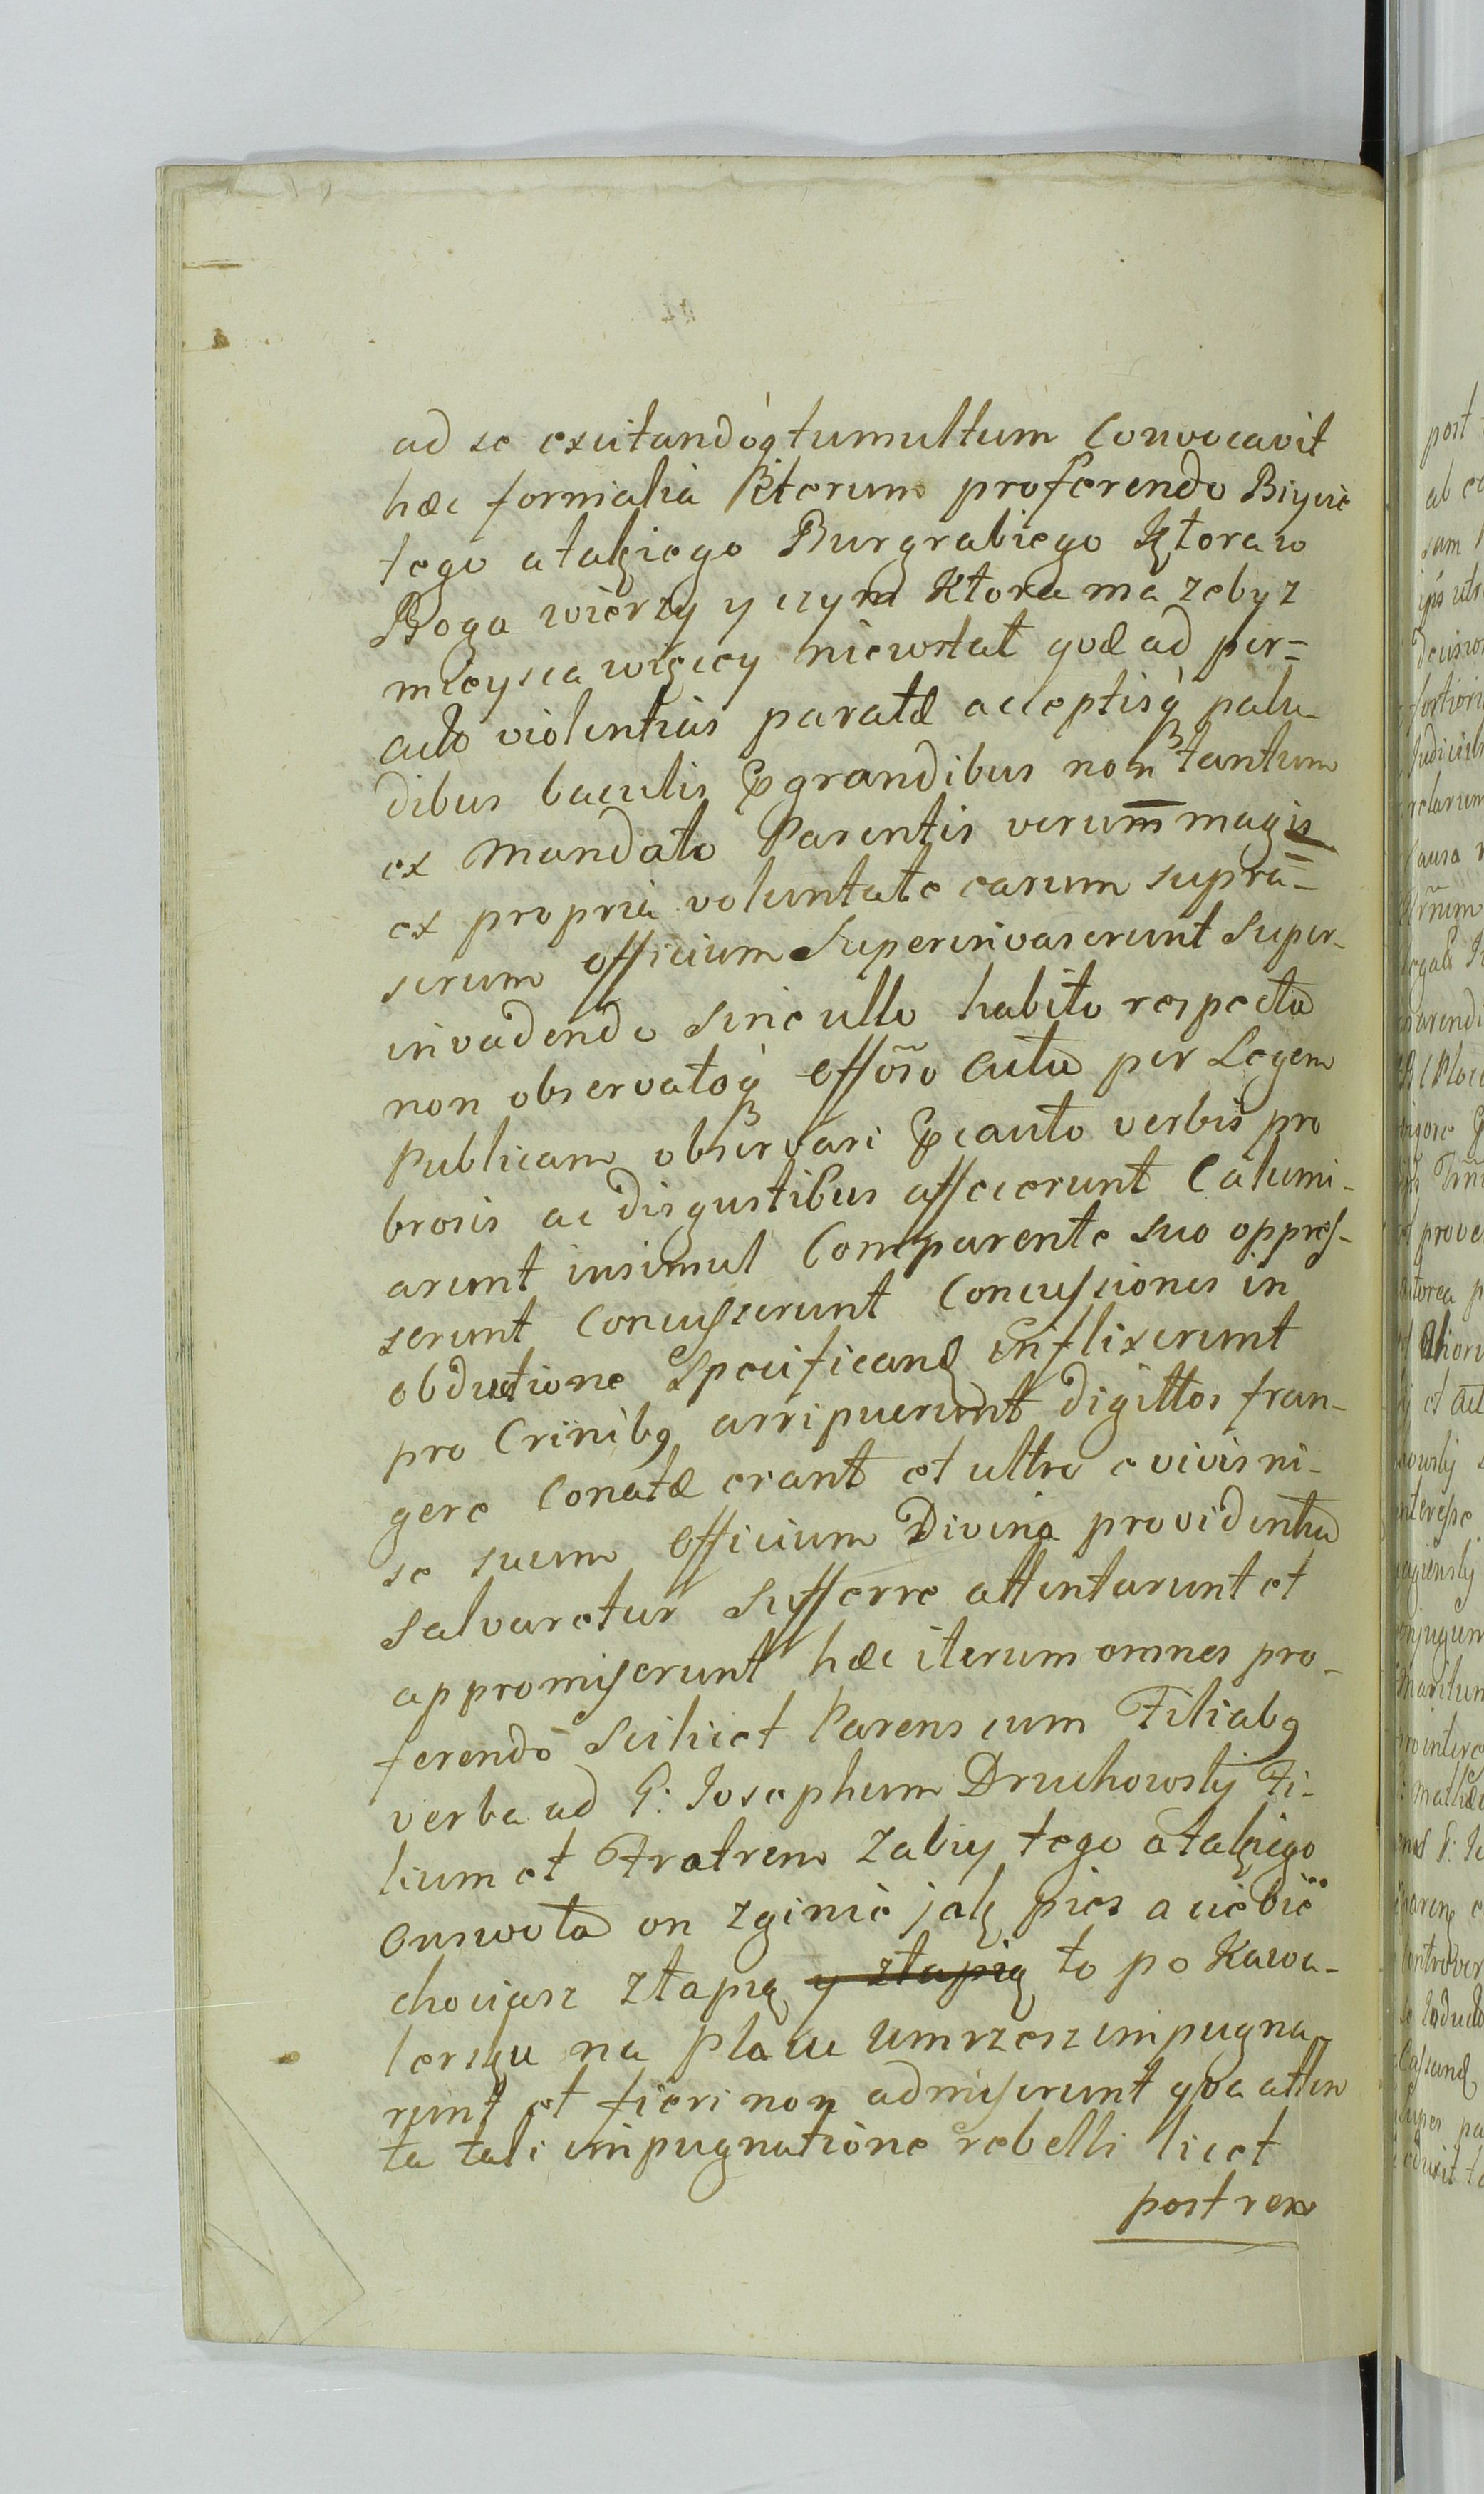 ad se excitandoq tumultum Convocavit
hæc formalia iterum proferendo Biycie
tego a takiego Burgrabiego ktora w
Boga wierzy y czym Ktora ma zeby z
mieysca więcey niewstał quæ ad per-
acto violentias paratæ acceptisq palu-
dibus baculis & grandibus non tantum
ex mandato Parentis verum magis
ex propria voluntate earum supra-
serum officium Superinvaserunt Super-
invadendo sine ullo habito respectu
non observatoq Offõso actu per Legem
Publicam observari & cauto verbis pro
brosis ac disgustibus affecerunt Calumi-
arunt insimul Comparente suo oppres-
serunt Concusserunt Concussiones in
obductione Specificand inflixerunt
pro Crinibq arripuerunt digittos fran-
gere Conatæ erant et ultro e vivis ni-
se suum Officium Divina providentia
salvaretur Sufferre attentarunt et
appromiserunt hæc iterum omnes pro-
ferendo Scilicet Parens cum Filiabq
verba ad G: Josephum Druchowskj Fi-
lium et Fratrem Zabiy tego a takiego
Onswota on zginie jak pies a ciebie
chociasz złapią y złapią to po Kawa-
lersku na placu umrzesz impugna-
runt et fieri non admiserunt qva atten
ta tali impugnatione rebelli licet
post rem